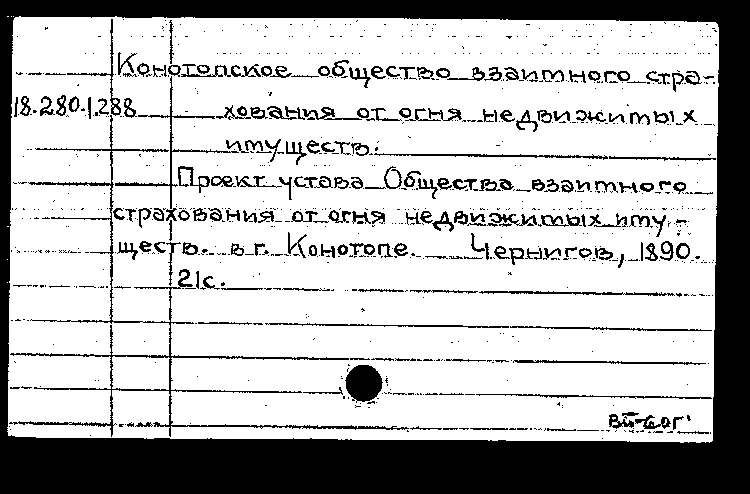 Конотопское общество взаимного стра-
18.280.1.288 хования от огня недвижимых
имуществ.
Проект устава Общества взаимного
страхования от огня недвижимых иму-
ществ. в г. Конотопе. Чернигов, 1890.
21с.